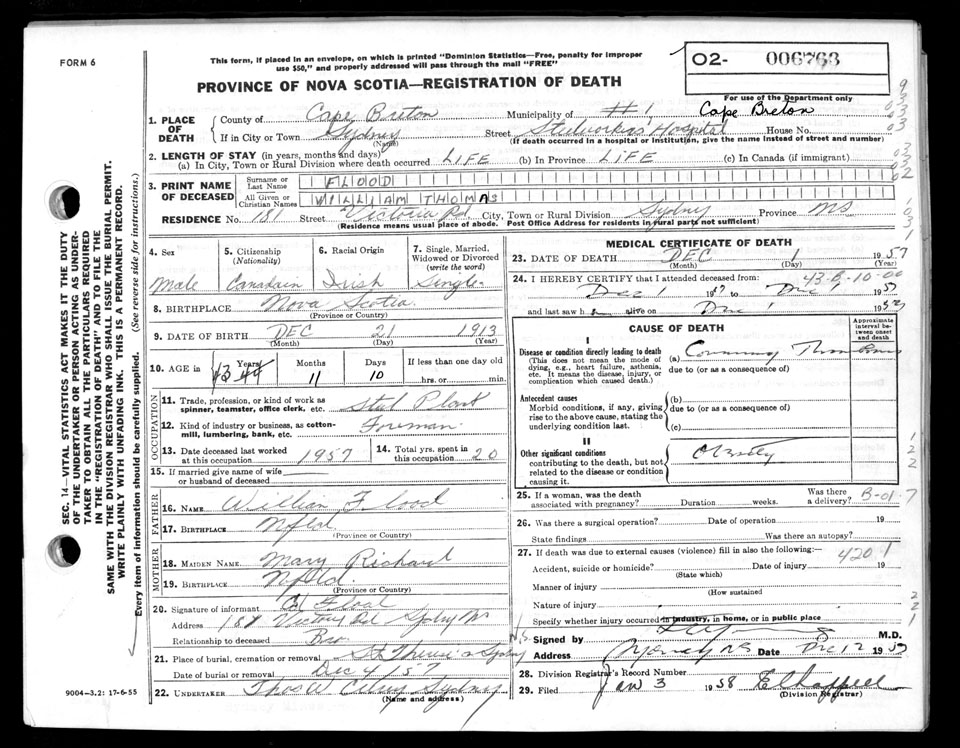 FORM 6
This form, if placed in an envelope, on which is printed "Dominion Statistics—Free, penalty for improper
use $50," and properly addressed will pass through the mail "FREE"
O2- 006763
For use of the Department only
PROVINCE OF NOVA SCOTIA—REGISTRATION OF DEATH
1. PLACE OF DEATH
County of Cape Breton Municipality of #1 Cape Breton
If in City or Town Sydney Street Steelworkers Hospital House No.
(Name) (If death occurred in a hospital or institution, give the name instead of street and number)
2. LENGTH OF STAY (in years, months and days)
(a) In City, Town or Rural Division where death occurred LIFE (b) In Province LIFE (c) In Canada (if immigrant)
3. PRINT NAME OF DECEASED
Surname or Last Name FLOOD
All Given or Christian Names WILLIAM THOMAS
RESIDENCE No. 181 Street Victoria Rd. City, Town or Rural Division Sydney Province NS
(Residence means usual place of abode. Post Office Address for residents in rural parts not sufficient)
4. Sex Male
5. Citizenship (Nationality) Canadain
6. Racial Origin Irish
7. Single, Married, Widowed or Divorced (write the word) Single
8. BIRTHPLACE Nova Scotia
(Province or Country)
9. DATE OF BIRTH DEC 21 1913
(Month) (Day) (Year)
10. AGE in 43 Years 11 Months 10 Days If less than one day old
hrs. or min.
OCCUPATION
11. Trade, profession, or kind of work as spinner, teamster, office clerk, etc. Steel Plant
12. Kind of industry or business, as cotton-mill, lumbering, bank, etc. Foreman
13. Date deceased last worked at this occupation 1957 14. Total yrs. spent in this occupation 20
15. If married give name of wife or husband of deceased
FATHER
16. NAME William Flood
17. BIRTHPLACE Nfld
(Province or Country)
MOTHER
18. MAIDEN NAME Mary Richard
19. BIRTHPLACE Nfld.
(Province or Country)
20. Signature of informant Flood
Address Victoria Rd Sydney NS
Relationship to deceased Bro
21. Place of burial, cremation or removal St Theresa Sydney N.S.
Date of burial or removal Dec 4/57
22. UNDERTAKER Thos W Curry Sydney
(Name and address)
MEDICAL CERTIFICATE OF DEATH
23. DATE OF DEATH DEC 1 1957
(Month) (Day) (Year)
24. I HEREBY CERTIFY that I attended deceased from: 43-B-10-00
Dec 1 1957 to Dec 1 1957
and last saw h alive on Dec 1 1957
CAUSE OF DEATH
Approximate interval between onset and death
I
Disease or condition directly leading to death (a) Coronary Thrombosis
(This does not mean the mode of dying, e.g., heart failure, asthenia, etc. It means the disease, injury, or complication which caused death.)
due to (or as a consequence of)
Antecedent causes (b)
Morbid conditions, if any, giving rise to the above cause, stating the underlying condition last.
due to (or as a consequence of)
(c)
II
Other significant conditions Obesity
contributing to the death, but not related to the disease or condition causing it.
25. If a woman, was the death associated with pregnancy? Duration weeks. Was there a delivery? B-01-7
26. Was there a surgical operation? Date of operation 19
State findings Was there an autopsy?
27. If death was due to external causes (violence) fill in also the following:— 420.1
Accident, suicide or homicide? Date of injury 19
(State which)
Manner of injury
(How sustained
Nature of injury
Specify whether injury occurred in industry, in home, or in public place
Signed by M.D.
Address Sydney NS Date Dec 12 1957
28. Division Registrar's Record Number
29. Filed Jan 3 1958 E Chappell
(Division Registrar)
SEC. 14—VITAL STATISTICS ACT MAKES IT THE DUTY
OF THE UNDERTAKER OR PERSON ACTING AS UNDER-
TAKER TO OBTAIN ALL THE PARTICULARS REQUIRED
IN THE "REGISTRATION OF DEATH" AND TO FILE THE
SAME WITH THE DIVISION REGISTRAR WHO SHALL ISSUE THE BURIAL PERMIT.
WRITE PLAINLY WITH UNFADING INK. THIS IS A PERMANENT RECORD.
Every item of information should be carefully supplied. (See reverse side for instructions.)
9004—3.2: 17-6-55